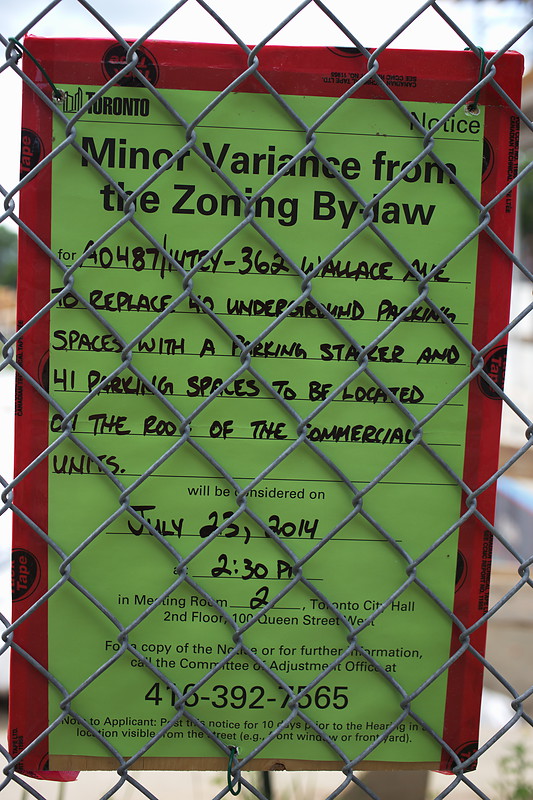 TORONTO
Notice
Minor Variance from
the Zoning By-law
for A0487/14TEY-362 WALLACE AVE
TO REPLACE 40 UNDERGROUND PARKING
SPACES WITH A PARKING STACKER AND
41 PARKING SPACES TO BE LOCATED
ON THE ROOF OF THE COMMERCIAL
UNITS.
will be considered on
JULY 23, 2014
at 2:30 PM
in Meeting Room 2, Toronto City Hall
2nd Floor, 100 Queen Street West
For a copy of the Notice or for further information,
call the Committee of Adjustment Office at
416-392-7565
Note to Applicant: Post this notice for 10 days prior to the Hearing in a
location visible from the street (e.g., front window or front yard).
Tape
Tape
Tape